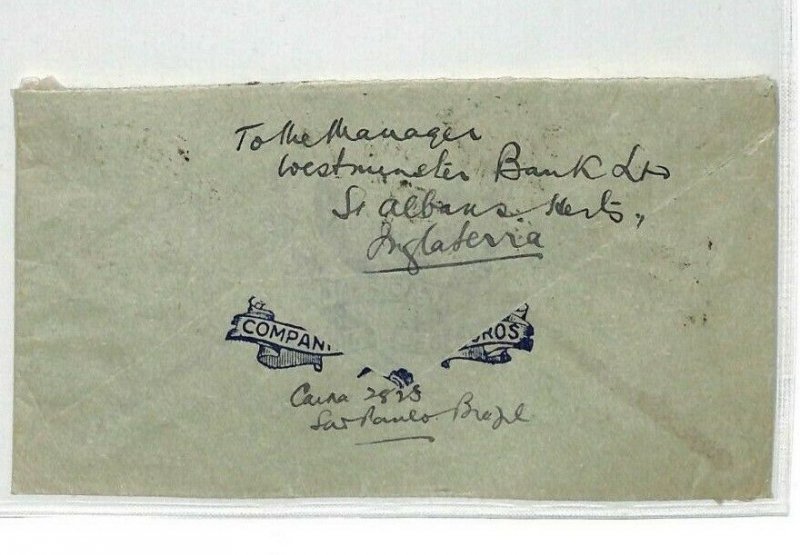 To the Manager
Westminster Bank Ltd
St Albans. Herts,
Inglaterra
COMPAN
ROS
Caixa 2828
Sao Paulo Brazil